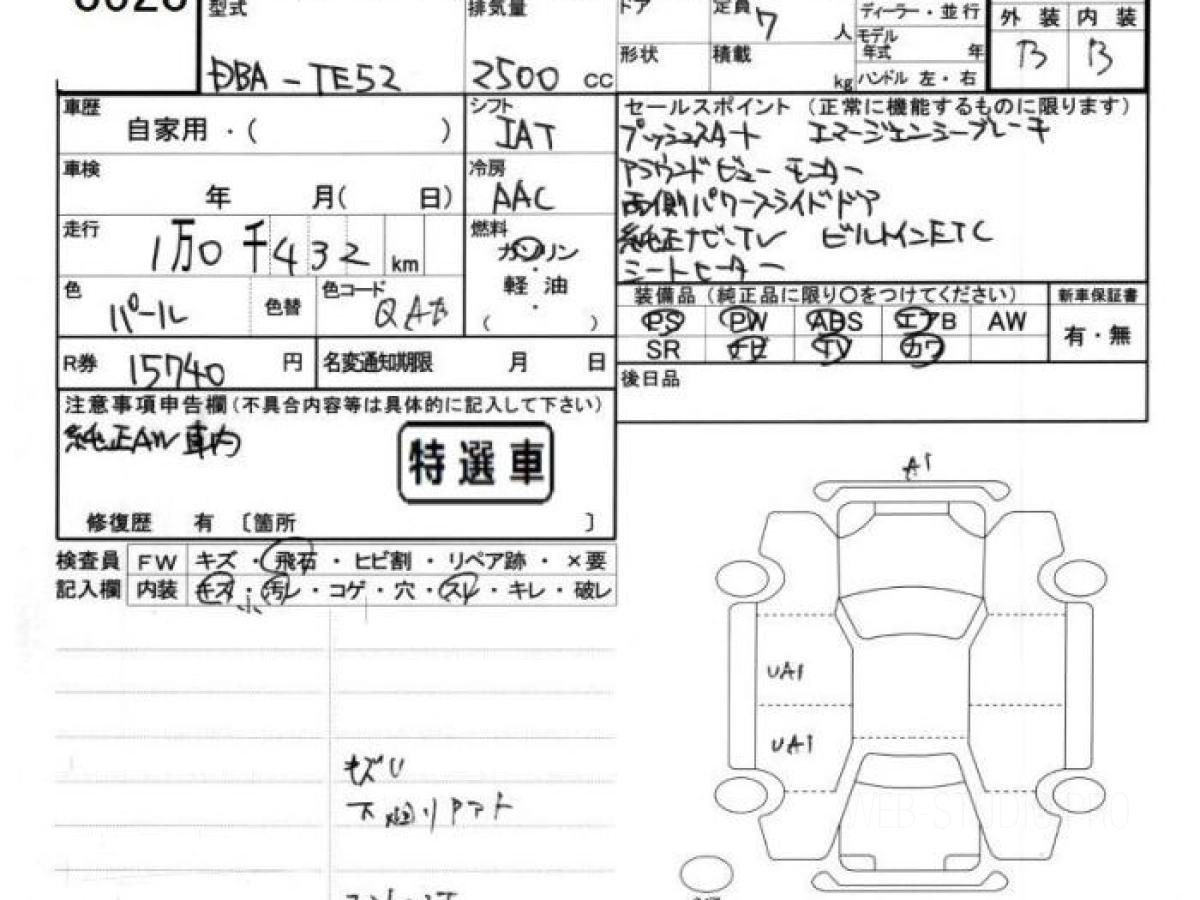 型式 DBA-TE52
排気量 2500 cc
ドア
定員 7 人
ディーラー・並行
モデル年式 年
ハンドル 左・右
形状
積載 kg
外装 内装
B B
車歴 自家用・( )
シフト IAT
車検 年 月( 日)
冷房 AAC
走行 1万0千432 km
燃料 ガソリン・軽油・( )
色 パール
色替
色コード QAB
R券 15740 円
名変通知期限 月 日
セールスポイント (正常に機能するものに限ります)
プッシュスタート エマージェンシーブレーキ
アラウンドビューモニター
両側パワースライドドア
純正ナビ・TV ビルトインETC
シートヒーター
装備品 (純正品に限り〇をつけてください)
新車保証書
PS PW ABS エアB AW
有・無
SR ナビ TV カワ
後日品
注意事項申告欄(不具合内容等は具体的に記入して下さい)
純正AW車内
特選車
修復歴 有 〔箇所 〕
検査員 FW キズ・飛石・ヒビ割・リペア跡・×要
記入欄 内装 キズ・汚レ・コゲ・穴・スレ・キレ・破レ
小
A1
UA1
UA1
キズU
WEB-STUDIO.PRO